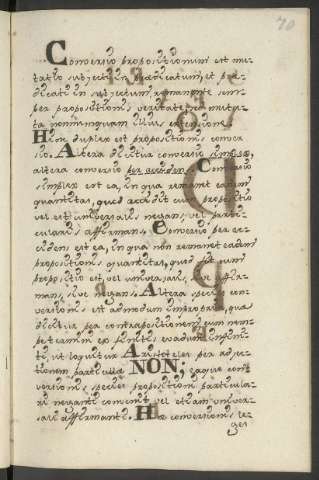 70
Conversio propositionum est mu-
tatio subjecti in praedicatum, et prae-
dicati in subjectum, remanente sem-
per propositionis veritate, et mutua-
ta nonnunquam illius extensione.
Haec duplex est propositionis conver-
sio. Altera dicitur conversio simplex,
altera conversio per accidens. Conversio
simplex est ea, in qua remanet eadem
quantitas, quod accidit cum propositio
vel est universalis negans, vel parti-
cularis affirmans. Conversio per acci-
dens est ea, in qua non remanet eadem
propositionis quantitas, quod fit cum
propositio est vel universalis, sive affir-
mans, sive negans. Altera species con-
versionis est admodum impropria, quae
dicitur per contrapositionem cum nem-
pe termini ex finitis evadunt infini-
ti, ut loquitur Aristoteles per adjec-
tionem particulae NON; eaque con-
versionis species propositioni particula-
ri neganti convenit vel etiam univer-
sali affirmanti. Hae conversionis le-
ges